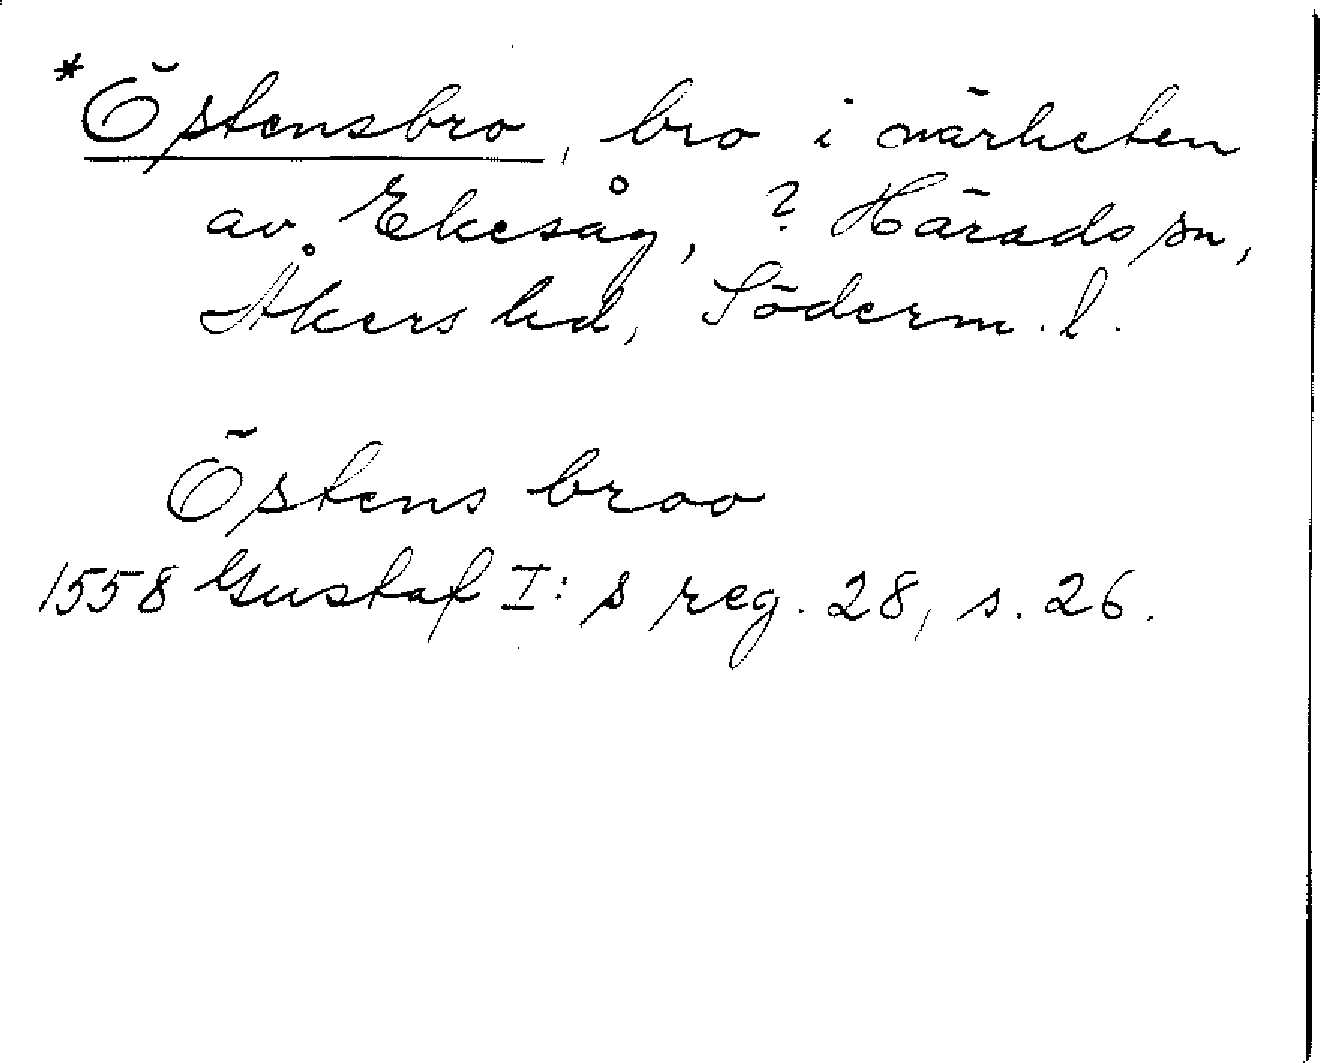 *Östensbro, bro i närheten
av Ekesåg, ? Härads sn,
Åkers hd, Söderm. l.
Östens broo
1558 Gustaf I: s reg. 28, s. 26.